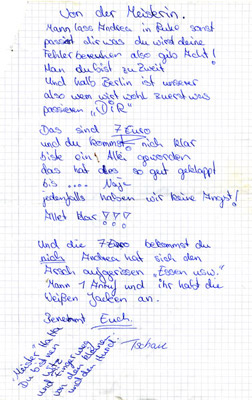 Von der Meisterin.
Mann lass Andrea in Ruhe sonst
passiert dir was du wirst deine
Fehler bereuhen also gib Acht!
Man du bist zu Zweit
Und halb Berlin ist unserer
also wem wirt wohl zuerst was
passieren "DiR"
Das sind 7 Euro
und du kommst nich klar
biste ein! Alle geworden
das hat des so gut geklappt
bis .... Naja
jedenfalls haben wir keine Angst!
Allet klar!!!
Und die 7 Euro bekommst du
nich Andrea hat sich den
Arsch aufgerissen "Essen usw."
Mann 1 Anruf und ihr habt die
Weißen Jacken an.
Benehmt Euch.
Tschau
"Meister" Ha Ha
Du bist nen
Witz
und Finger weg
von dem kleinen
und den Hund!